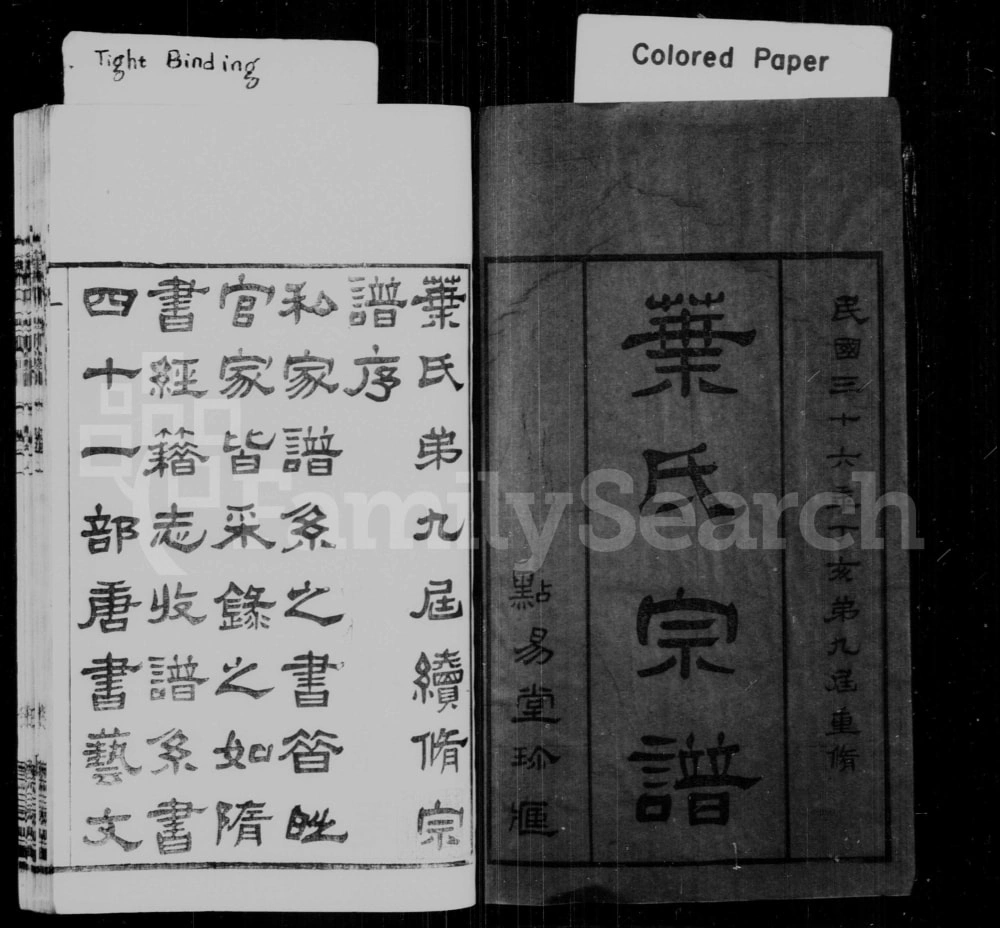 Tight Binding
Colored Paper
民國三十六丁亥弟九屆重脩
葉氏宗譜
點易堂珍
葉氏弟九屆續脩宗
譜序
私家譜系之書
官家皆采錄之如隋
書經籍志收譜系書
四十一部唐書藝文
FamilySearch